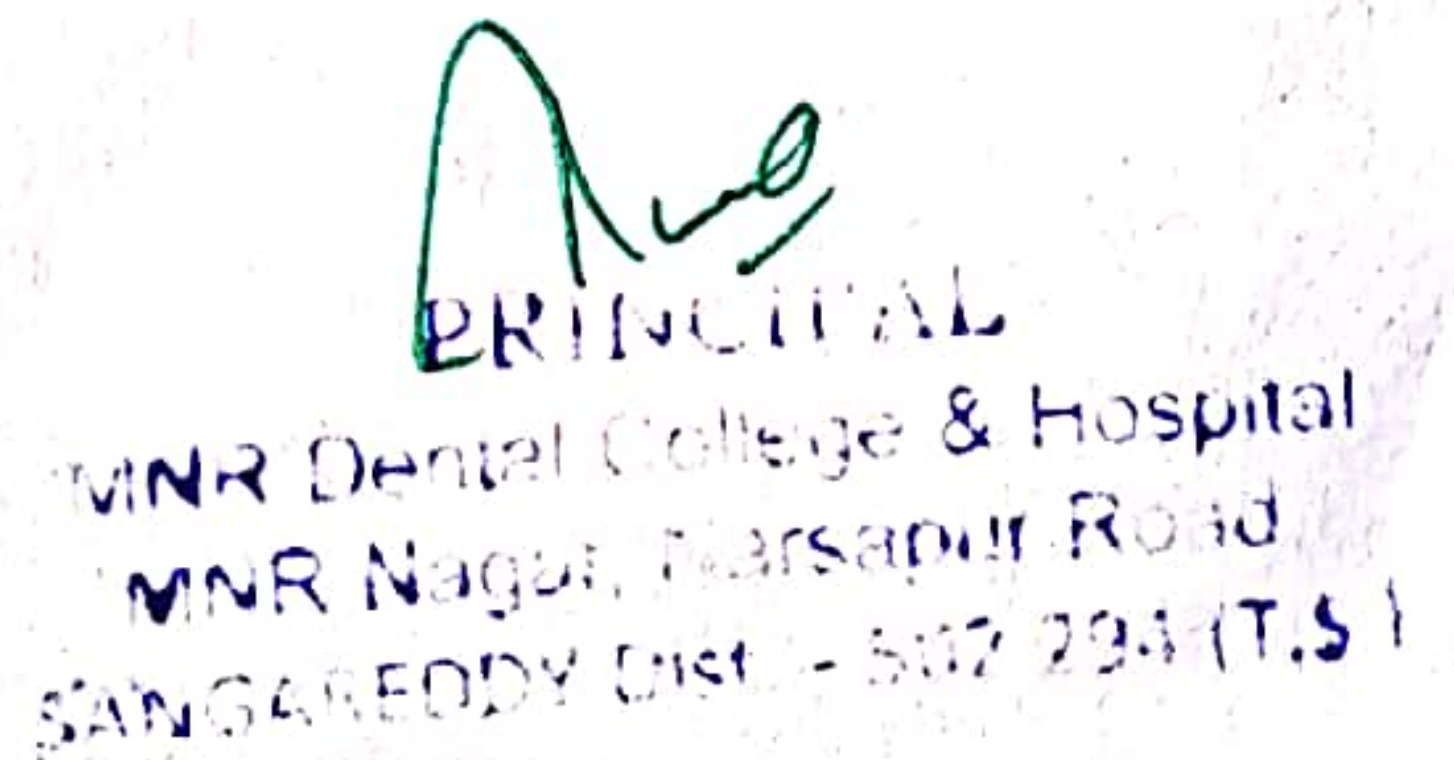 PRINCIPAL
MNR Dental College & Hospital
MNR Nagar, Narsapur Road
SANGAREDDY Dist. - 502 294 (T.S.)